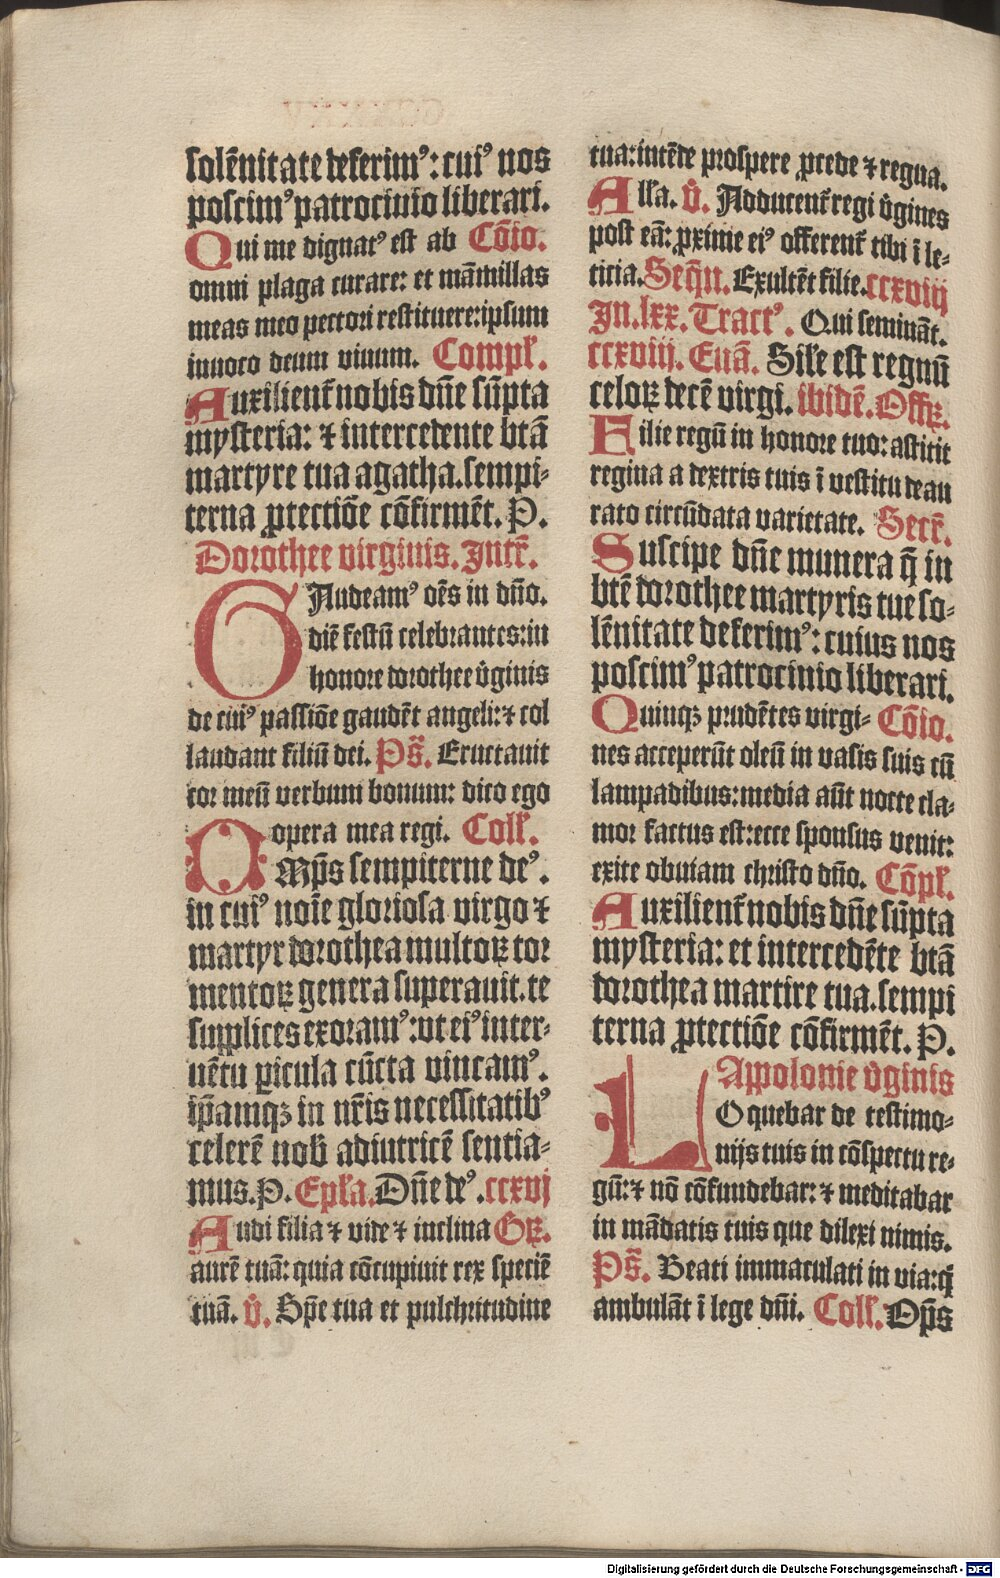 solēnitate deferimꝰ: cuiꝰ nos
poscimꝰ patrocinio liberari.
Qui me dignatꝰ est ab Cōio.
omni plaga curare: et māmillas
meas meo pectori restituere: ipsum
inuoco deum viuum. Compł.
Auxilient̄ nobis dn̄e sūpta
mysteria: ⁊ intercedente btā
martyre tua agatha. sempi⸗
terna ꝓtectiōe cōfirmēt. P.
Dorothee virginis. Intr̄.
GAudeamꝰ oēs in dn̄o.
diē festū celebrantes: in
honore dorothee v̄ginis
de cuiꝰ passiōe gaudēt angeli: ⁊ col
laudant filiū dei. Ps̄. Eructauit
cor meū verbum bonum: dico ego
opera mea regi. Coll̄.
OMp̄s sempiterne deꝰ.
in cuiꝰ noīe gloriosa virgo ⁊
martyr dorothea multoꝝ tor
mentoꝝ genera superauit. te
supplices exoramꝰ: vt eiꝰ inter⸗
uētu ꝑicula cūcta vincamꝰ.
ip̄amqꝫ in nr̄is necessitatibꝰ
celerē nob̄ adiutricē sentia⸗
mus. P. Epła. Dn̄e deꝰ. ccxvj
Audi filia ⁊ vide ⁊ inclina Gꝝ.
aurē tuā: quia cōcupiuit rex speciē
tuā. v̄. Sp̄e tua et pulchritudine
tua: intēde prospere ꝓcede ⁊ regna.
Alła. v̄. Adducent̄ regi v̄gines
post eā: ꝓxime eiꝰ offerent̄ tibi ī le⸗
ticia. Seqn̄. Exultēt filie. ccxviij
In. lxx. Tractꝰ. Qui semināt.
ccxviij. Euā. Sił̄e est regnū
celoꝝ decē virgi. ibidē. Offꝝ.
Filie regū in honore tuo: astitit
regina a dextris tuis ī vestitu deau
rato circūdata varietate. Secr̄.
Suscipe dn̄e munera q̄ in
btē dorothee martyris tue so⸗
lēnitate deferimꝰ: cuius nos
poscimꝰ patrocinio liberari.
Quinqꝫ prudētes virgi⸗ Cōio.
nes acceperūt oleū in vasis suis cū
lampadibus: media aūt nocte cla⸗
mor factus est: ecce sponsus venit:
exite obuiam christo dn̄o. Cōpł.
Auxilient̄ nobis dn̄e sūpta
mysteria: et intercedēte btā
dorothea martire tua. sempi
terna ꝓtectiōe cōfirmēt. P.
Appolonie v̄ginis
LOquebar de testimo⸗
nijs tuis in cōspectu re⸗
gū: ⁊ nō cōfundebar: ⁊ meditabar
in mādatis tuis que dilexi nimis.
Ps̄. Beati immaculati in via: q̄
ambulāt ī lege dn̄i. Coll̄. Omp̄s
Digitalisierung gefördert durch die Deutsche Forschungsgemeinschaft - DFG